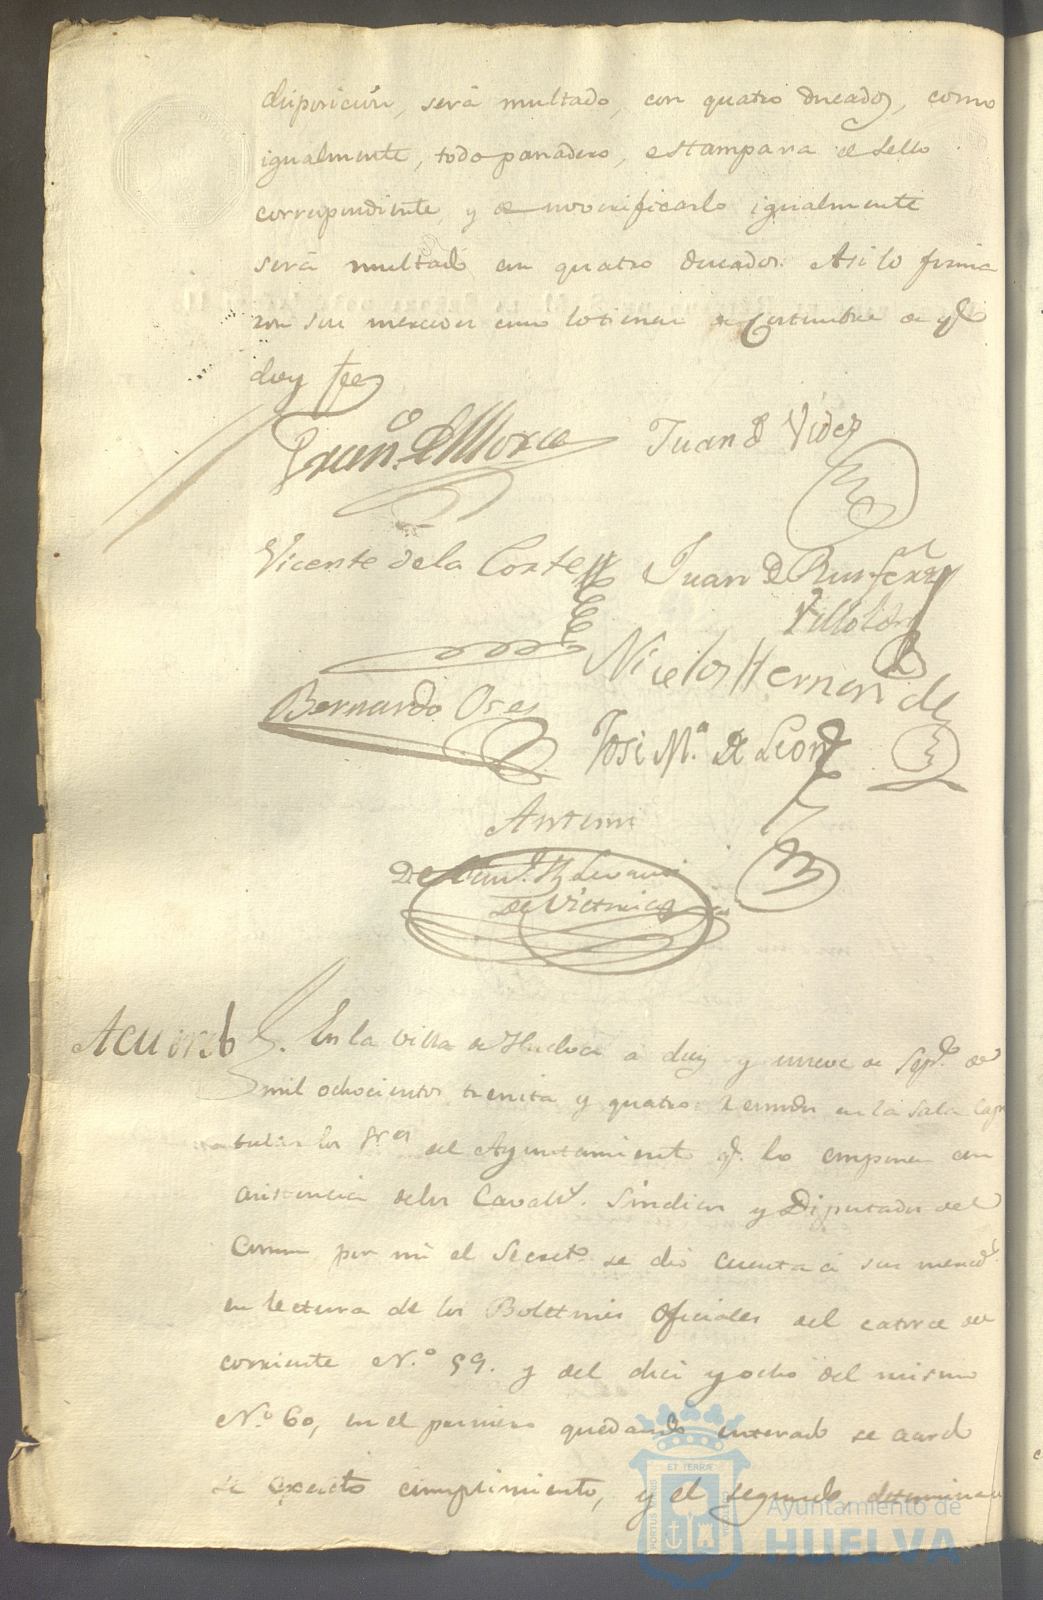 disposicion, será multado, con quatro ducados, como
igualmente, todo panadero, estampara el sello
correspondiente, y de no verificarlo igualmente
será multado en quatro ducados. Asi lo firma
ron sus mercedes como lo tienen de Costumbre de qe
doy fee
Franco. de Mora Juan de Videz
Vicente de la Corte Juan de
Nicolas Hernandez
Bernardo Oses
José Ma. de Leon
Antemi
de Victoria
Acuerdo En la villa de Huelva a diez y nueve de Sepe. de
mil ochocientos treinta y quatro reunidos en la Sala Capi
tular los Sres del Ayuntamiento qe. lo componen con
asistencia de los Cavalls. Sindicos y Diputados del
Comun por mi el Secreto. se dió cuenta á sus merceds.
en lectura de los Boletines Oficiales del catorce del
corriente No. 59. y del diez y ocho del mismo
No. 60, en el primero quedando enterado se acordó
se exacto cumplimiento, y el segundo determina
ET TERRAE
Ayuntamiento de
HUELVA